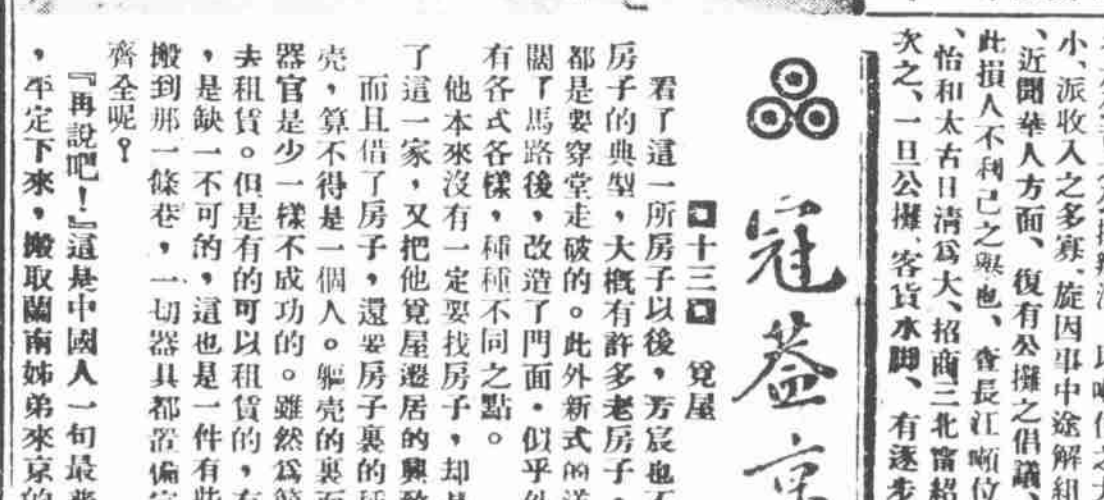 小、派收入之多寡、旋因事中途解組
、近聞華人方面、復有公攤之倡議
此損人不利己之舉也、查長江噸位
、怡和太古日清爲大、招商三北甯紹
次之、一旦公攤、客貨水脚、有逐步
冠蓋京
十三 覓屋
看了這一所房子以後，方宸也不
房子的典型，大概有許多老房子，
都是要穿堂走破的。此外新式的洋
闊了馬路後，改造了門面，似乎外
有各式各樣，種種不同之點。
他本來沒有一定要找房子，却是
了這一家，又把他覓屋遷居的興致
而且借了房子，還要房子裏的
壳，算不得是一個人。軀壳的裏面
器官是少一樣不成功的。雖然爲
去租賃。但是有的可以租賃的，有
，是缺一不可的，這也是一件有些
搬到那一條巷，一切器具都置備
齊全呢？
『再說吧！』這是中國人一句最
，平定下來，搬取蘭南姊弟來京的